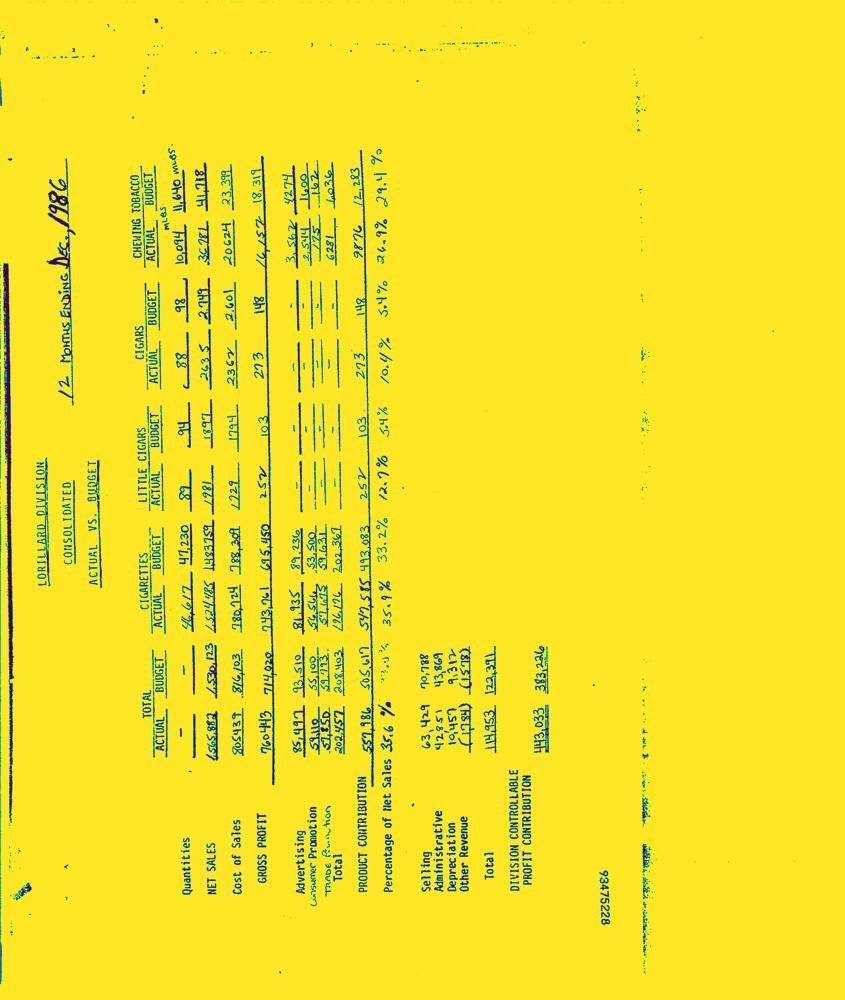 LORILLARD DIVISION
CONSOLIDATED
ACTUAL VS. BUDGET
12 MONTHS ENDING Dec., 1986
TOTAL CIGARETTES LITTLE CIGARS CIGARS CHEWING TOBACCO
ACTUAL BUDGET ACTUAL BUDGET ACTUAL BUDGET ACTUAL BUDGET ACTUAL BUDGET
Quantities - - 46,617 47,230 89 94 88 98 10,094 MLBS. 11,640 MLBS.
NET SALES 1,565,882 1,530,123 1,524,485 1,483,759 1981 1897 2635 2,749 36,781 41,718
Cost of Sales 805439 816,103 780,724 788,309 1,729 1794 2362 2,601 20624 23,399
GROSS PROFIT 760443 714,020 743,761 695,450 252 103 273 148 16,157 18,319
Advertising 85,497 93,510 81,935 89,236 - - - - 3,562 4274
Consumer Promotion 59,110 55,100 56,566 53,500 - - - - 2,544 1600
TRADE Promotion 57,850 59,793 57,675 59,631 - - - - 175 162
Total 202,457 208,403 196,176 202,367 - - - - 6281 6036
PRODUCT CONTRIBUTION 557,986 505,617 547,585 493,083 252 103 273 148 9876 12,283
Percentage of Net Sales 35.6 % 35.9 % 33.2% 12.7% 5.4% 10.4 % 5.4% 26.9% 29.4 %
Selling 63,429 70,788
Administrative 42,851 43,869
Depreciation 10,457 9,312
Other Revenue (1,784) (1578)
Total 114,953 122,391
DIVISION CONTROLLABLE
PROFIT CONTRIBUTION 443,033 383,226
93475228